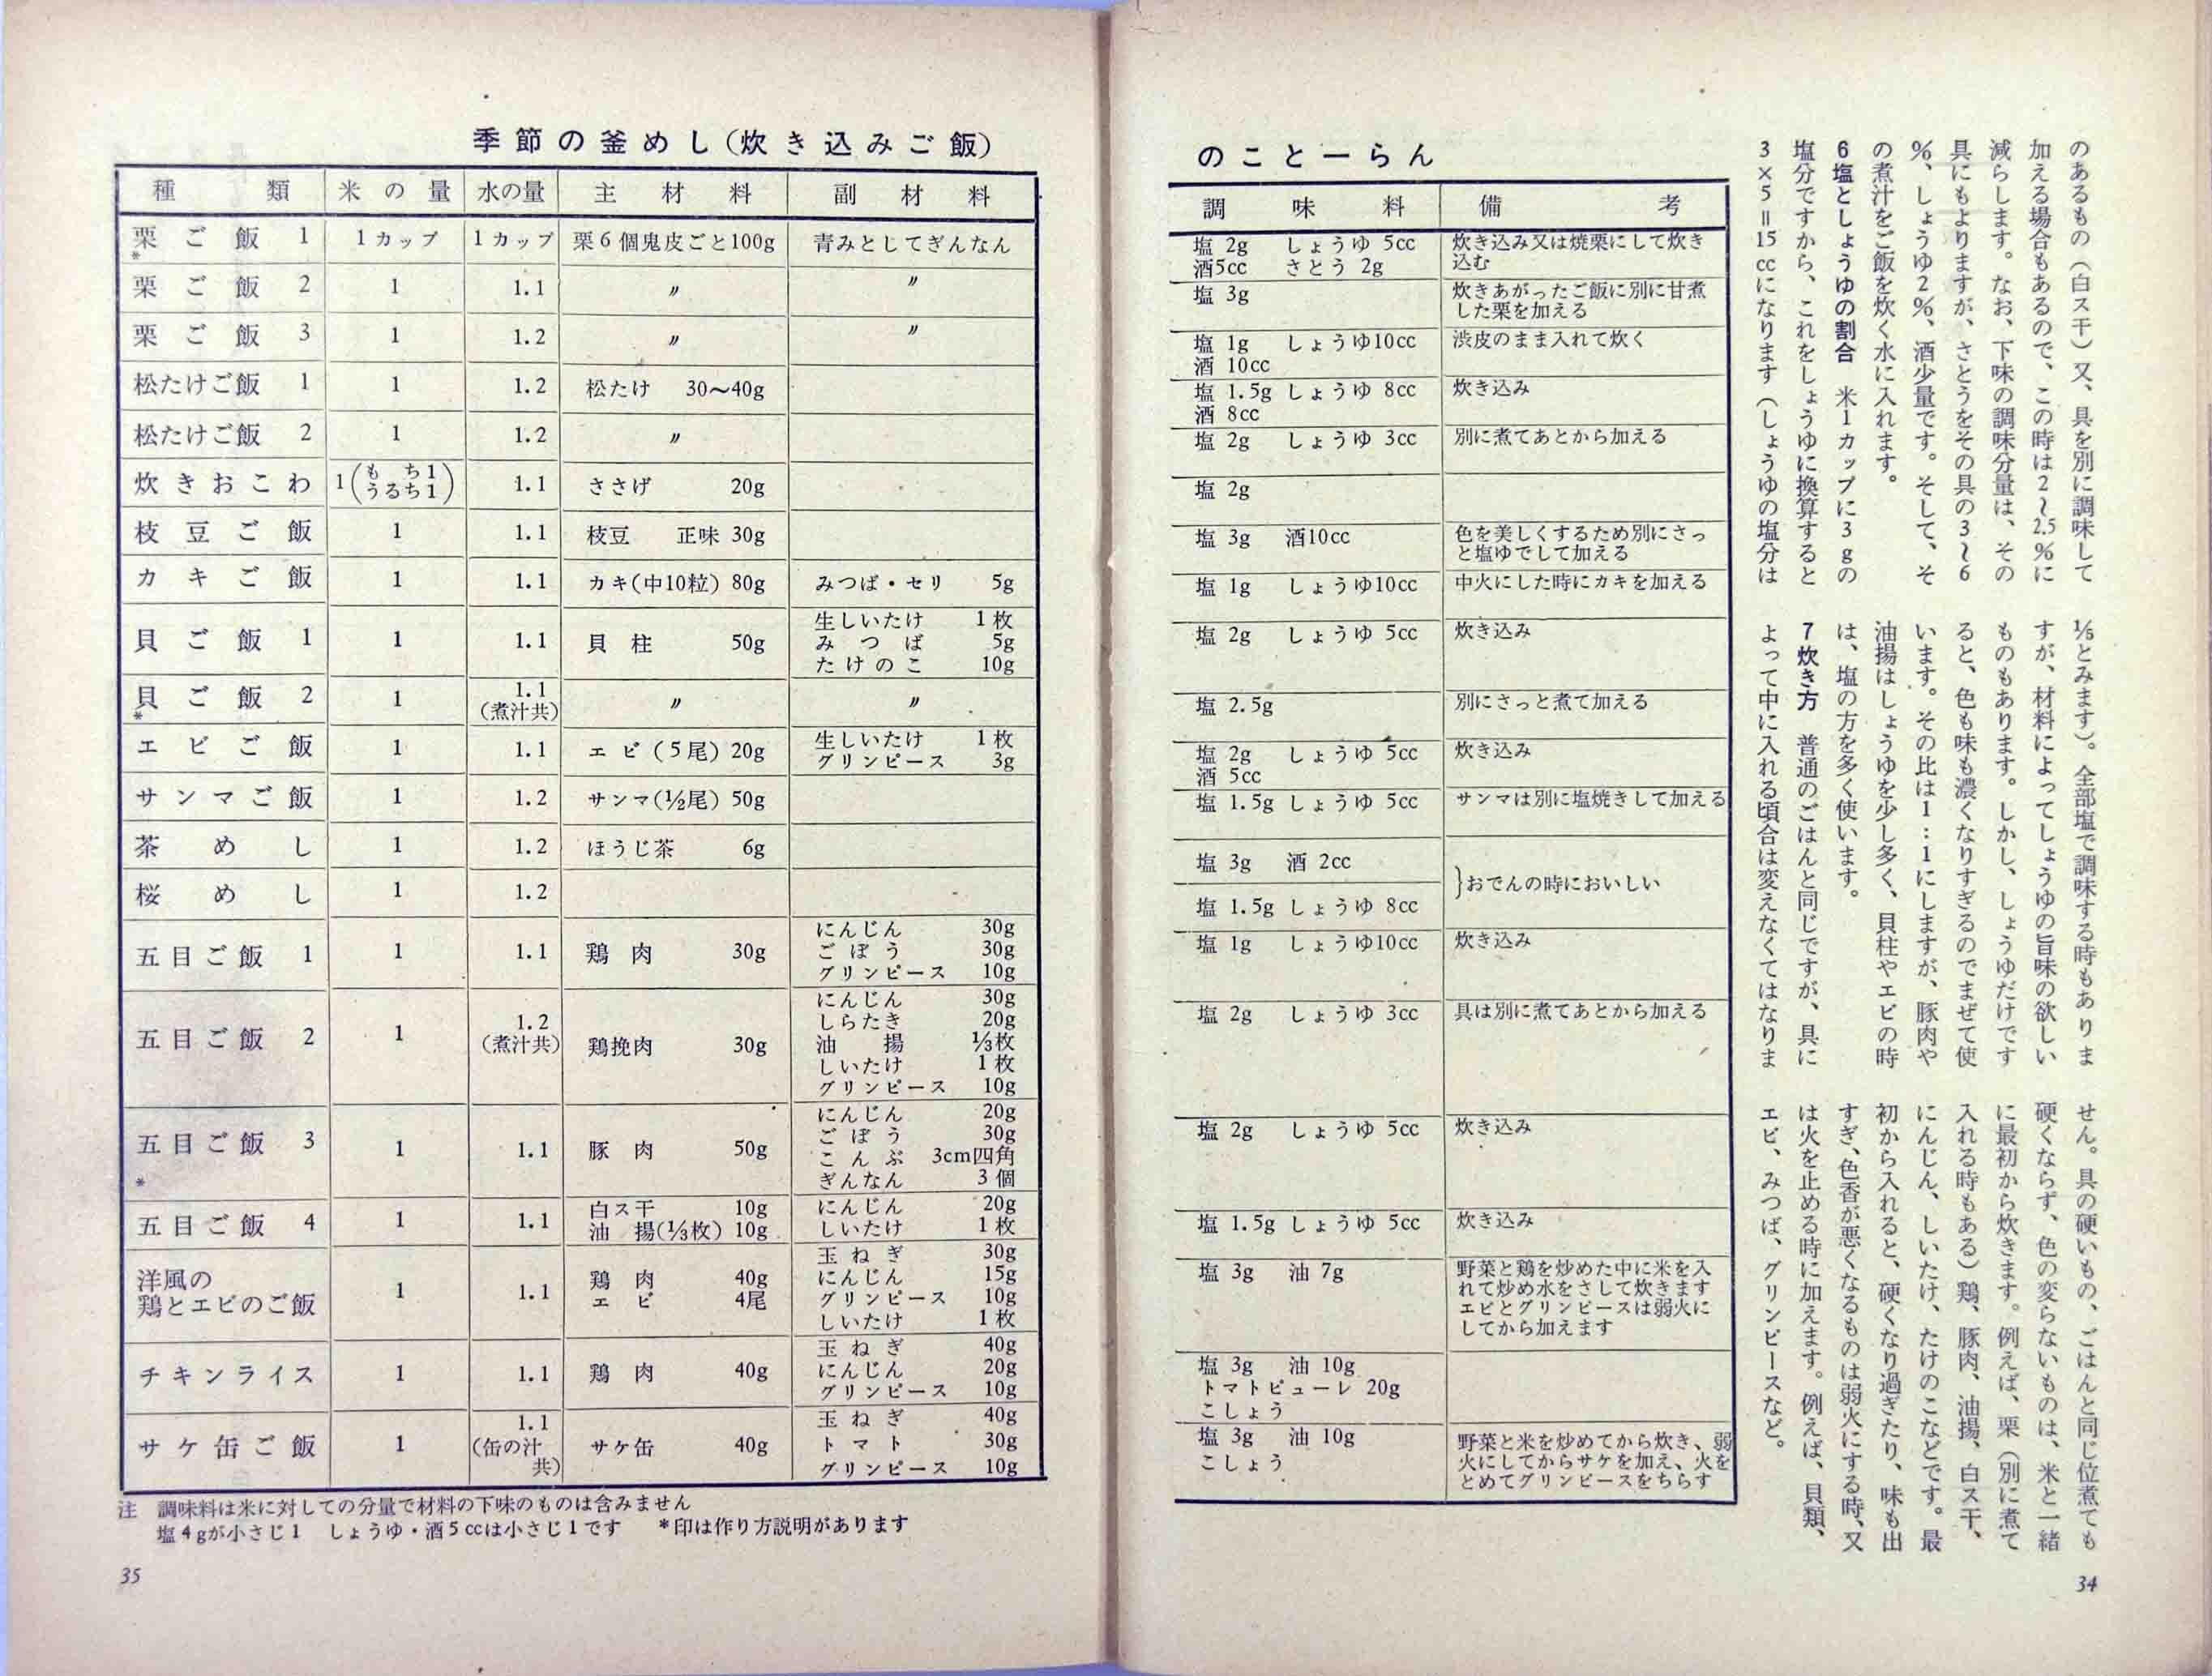 のあるもの（白ス干）又、具を別に調味して
加える場合もあるので、この時は2〜2.5％に
減らします。なお、下味の調味分量は、その
具にもよりますが、さとうをその具の3〜6
％、しょうゆ2％、酒少量です。そして、そ
の煮汁をご飯を炊く水に入れます。
6 塩としょうゆの割合　米1カップに3gの
塩分ですから、これをしょうゆに換算すると
3×5＝15ccになります（しょうゆの塩分は
⅕とみます）。全部塩で調味する時もありま
すが、材料によってしょうゆの旨味の欲しい
ものもあります。しかし、しょうゆだけです
ると、色も味も濃くなりすぎるのでまぜて使
います。その比は1：1にしますが、豚肉や
油揚はしょうゆを少し多く、貝柱やエビの時
は、塩の方を多く使います。
7 炊き方　普通のごはんと同じですが、具に
よって中に入れる頃合は変えなくてはなりま
せん。具の硬いもの、ごはんと同じ位煮ても
硬くならず、色の変らないものは、米と一緒
に最初から炊きます。例えば、栗（別に煮て
入れる時もある）鶏、豚肉、油揚、白ス干、
にんじん、しいたけ、たけのこなどです。最
初から入れると、硬くなり過ぎたり、味も出
すぎ、色香が悪くなるものは弱火にする時、又
は火を止める時に加えます。例えば、貝類、
エビ、みつば、グリンピースなど。
34
季節の釜めし(炊き込みご飯)
種類　米の量　水の量　主材料　副材料
栗ご飯 1　1カップ　1カップ　栗6個鬼皮ごと100g　青みとしてぎんなん
*
栗ご飯 2　1　1.1　〃　〃
栗ご飯 3　1　1.2　〃　〃
松たけご飯 1　1　1.2　松たけ 30〜40g
松たけご飯 2　1　1.2　〃
炊きおこわ　1(もち1 うるち1)　1.1　ささげ 20g
枝豆ご飯　1　1.1　枝豆 正味 30g
カキご飯　1　1.1　カキ(中10粒) 80g　みつば・セリ 5g
貝ご飯 1　1　1.1　貝柱 50g　生しいたけ 1枚
みつば 5g
たけのこ 10g
貝ご飯 2　1　1.1　〃　〃
*　(煮汁共)
エビご飯　1　1.1　エビ(5尾) 20g　生しいたけ 1枚
グリンピース 3g
サンマご飯　1　1.2　サンマ(½尾) 50g
茶めし　1　1.2　ほうじ茶 6g
桜めし　1　1.2
五目ご飯 1　1　1.1　鶏肉 30g　にんじん 30g
ごぼう 30g
グリンピース 10g
五目ご飯 2　1　1.2　鶏挽肉 30g　にんじん 30g
(煮汁共)　しらたき 20g
油揚 ⅓枚
しいたけ 1枚
グリンピース 10g
五目ご飯 3　1　1.1　豚肉 50g　にんじん 20g
*　ごぼう 30g
こんぶ 3cm四角
ぎんなん 3個
五目ご飯 4　1　1.1　白ス干 10g　にんじん 20g
油揚(⅓枚) 10g　しいたけ 1枚
洋風の　1　1.1　鶏肉 40g　玉ねぎ 30g
鶏とエビのご飯　エビ 4尾　にんじん 15g
グリンピース 10g
しいたけ 1枚
チキンライス　1　1.1　鶏肉 40g　玉ねぎ 40g
にんじん 20g
グリンピース 10g
サケ缶ご飯　1　1.1　サケ缶 40g　玉ねぎ 40g
(缶の汁共)　トマト 30g
グリンピース 10g
注　調味料は米に対しての分量で材料の下味のものは含みません
塩4gが小さじ1　しょうゆ・酒5ccは小さじ1です　*印は作り方説明があります
35
のこと一らん
調味料　備考
塩 2g　しょうゆ 5cc　炊き込み又は焼栗にして炊き
酒5cc　さとう 2g　込む
塩 3g　炊きあがったご飯に別に甘煮
した栗を加える
塩 1g　しょうゆ10cc　渋皮のまま入れて炊く
酒 10cc
塩 1.5g しょうゆ 8cc　炊き込み
酒 8cc
塩 2g　しょうゆ 3cc　別に煮てあとから加える
塩 2g
塩 3g　酒10cc　色を美しくするため別にさっ
と塩ゆでして加える
塩 1g　しょうゆ10cc　中火にした時にカキを加える
塩 2g　しょうゆ 5cc　炊き込み
塩 2.5g　別にさっと煮て加える
塩 2g　しょうゆ 5cc　炊き込み
酒 5cc
塩 1.5g しょうゆ 5cc　サンマは別に塩焼きして加える
塩 3g　酒 2cc
}おでんの時においしい
塩 1.5g しょうゆ 8cc
塩 1g　しょうゆ10cc　炊き込み
塩 2g　しょうゆ 3cc　具は別に煮てあとから加える
塩 2g　しょうゆ 5cc　炊き込み
塩 1.5g しょうゆ 5cc　炊き込み
塩 3g　油 7g　野菜と鶏を炒めた中に米を入
れて炒め水をさして炊きます
エビとグリンピースは弱火に
してから加えます
塩 3g　油 10g
トマトピューレ 20g
こしょう
塩 3g　油 10g　野菜と米を炒めてから炊き、弱
こしょう　火にしてからサケを加え、火を
とめてグリンピースをちらす